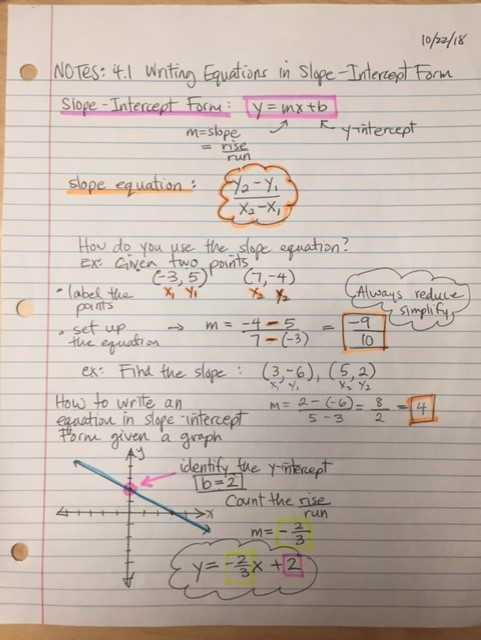 10/22/18
NOTES: 4.1 Writing Equations in Slope-Intercept Form
Slope-Intercept Form: y = mx + b
m = slope
y-intercept
= rise/run
slope equation: (y₂ - y₁)/(x₂ - x₁)
How do you use the slope equation?
Ex: Given two points
(-3, 5) (7, -4)
x₁ y₁ x₂ y₂
• label the
points
Always reduce
simplify
• set up
the equation
→ m = (-4 - 5)/(7 - (-3)) = -9/10
ex: Find the slope: (3, -6), (5, 2)
x₁ y₁ x₂ y₂
m = (2 - (-6))/(5 - 3) = 8/2 = 4
How to write an
equation in slope-intercept
form given a graph
y
x
identify the y-intercept
b = 2
Count the rise/run
m = -2/3
y = -2/3 x + 2